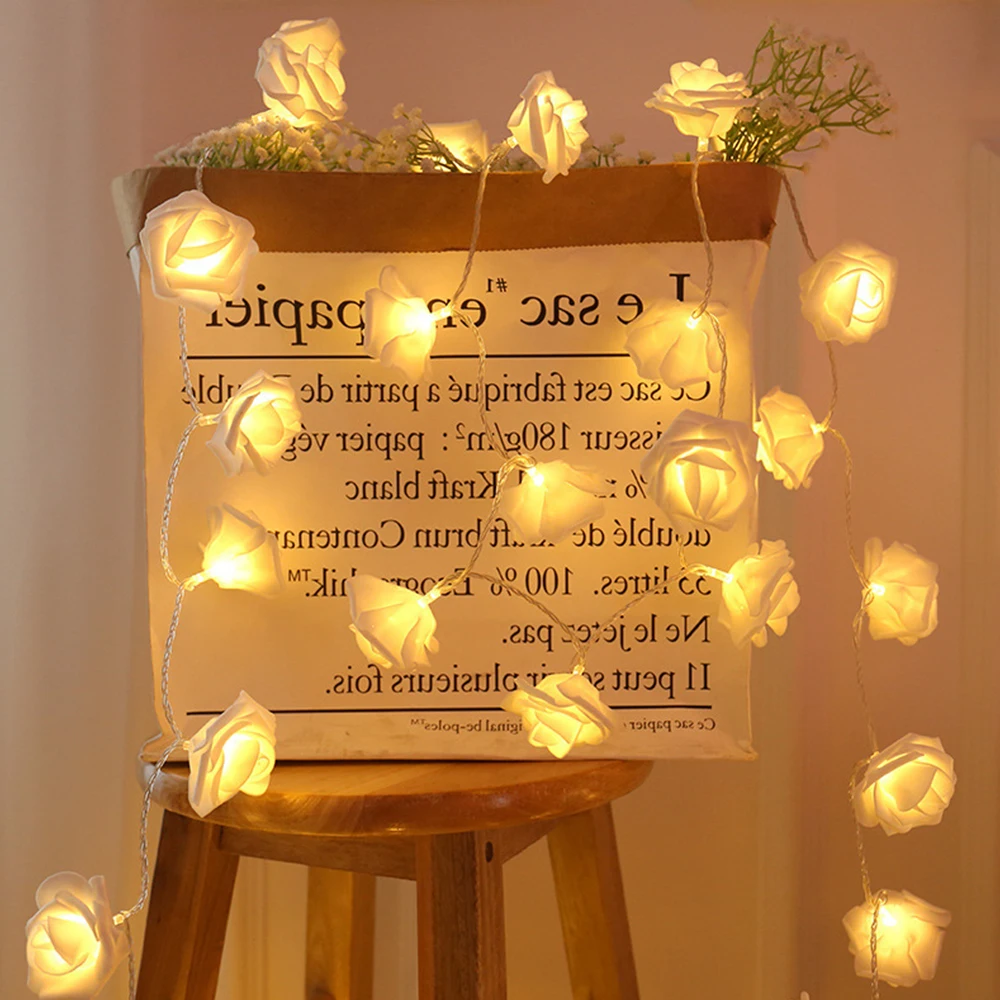 Le sac #1 en papier
Ce sac est fabriqué a partir a papier de Double
180g/m² : papier
% Kraft blanc
doublé de Kraft brun Contenan
55 litres. 100% .™
Ne le jetez pas.
Il peut servir plusieurs fois.
Ce sac papier original be-poles™